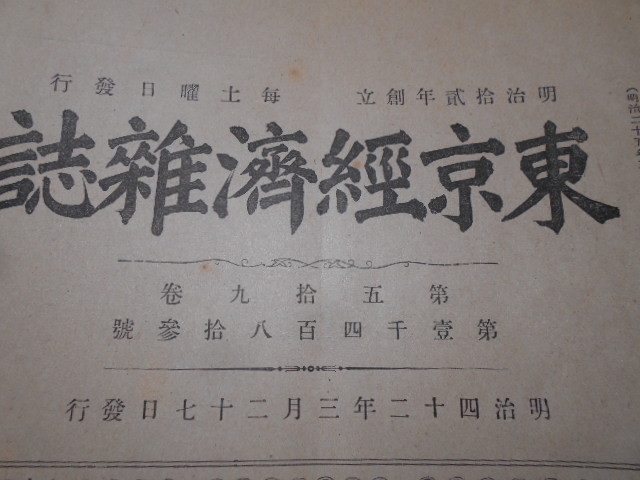 明治拾貳年創立　每土曜日發行
東京經濟雜誌
第五拾九卷
第壹千四百八拾參號
明治四十二年三月二十七日發行